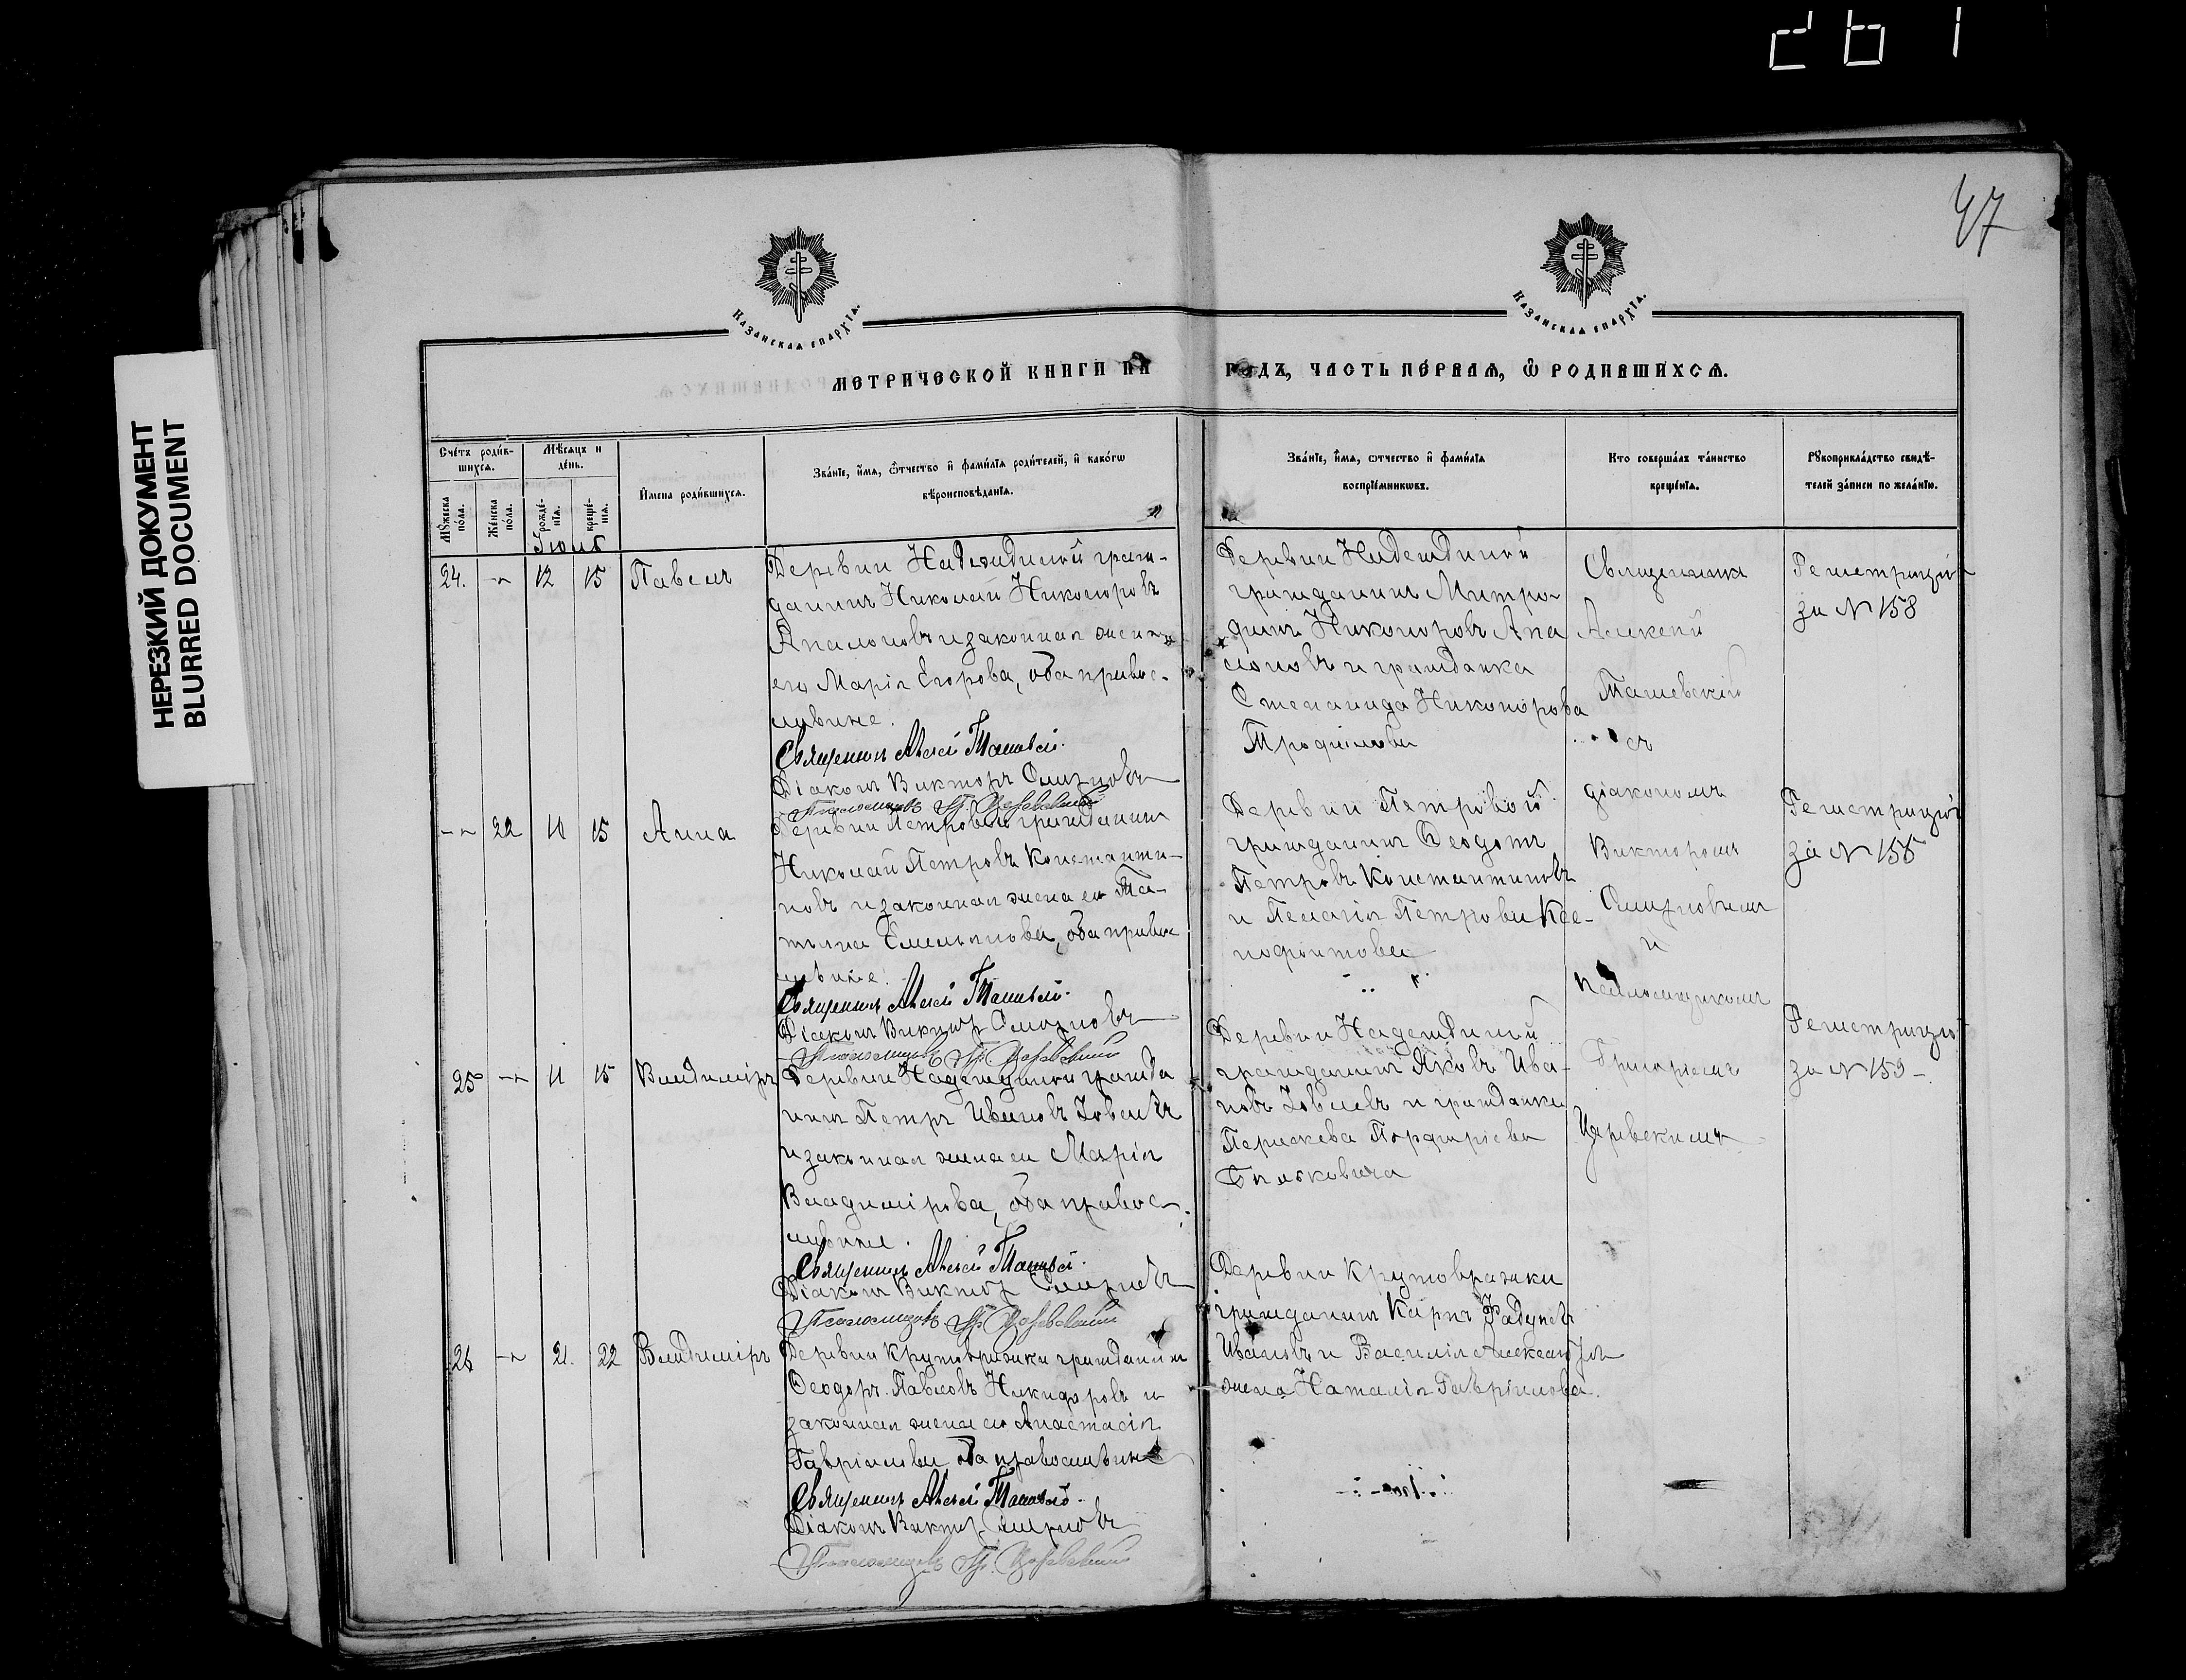 261
НЕРЕЗКИЙ ДОКУМЕНТ
BLURRED DOCUMENT
47
Казанская епархїа.
Казанская епархїа.
МЕТРИЧЕСКОЙ КНИГИ НА
ГОДЪ, ЧАСТЬ ПЕРВАЯ, Ѿ РОДИВШИХСЯ.
Счетъ родив-
шихся.
Мѣсяцъ и
день.
Мꙋжеска
пола.
Женска
пола.
рожде-
нїя.
креще-
нїя.
Имена родившихся.
Званїе, имя, ѿтчество и фамилїя родителей, и какогѡ
вѣроисповѣданїя.
Званїе, имя, ѿтчество и фамилїя
воспрїемниковъ.
Кто совершалъ таинство
крещенїя.
Рꙋкоприкладство свидѣ-
телей записи по желанїю.
24. 12 15 Павелъ
Деревни Надеждиной граж-
данинъ Николай Никоноровъ
Аполоновъ и законная жена
его Марія Егорова, оба правос-
лавные.
Священникъ Алексѣй Ташевскій.
Діаконъ Викторъ Смирновъ
Псаломщикъ Гр. Царевскій
Деревни Надеждиной
гражданинъ Митро-
Никоноровъ Апа
лоновъ и гражданка
Степанида Никонорова
Трофимова
Священникъ
Алексѣй
Ташевскій
съ
діакономъ
Викторомъ
Смирновымъ
и
псаломщикомъ
Григоріемъ
Царевскимъ
за № 158
22 11 15 Анна
Деревни Петровой гражданинъ
Николай Петровъ Константи-
новъ и законная жена его Та-
тьяна Емельянова, оба правос
лавные.
Священникъ Алексѣй Ташевскій.
Діаконъ Викторъ Смирновъ
Псаломщикъ Гр. Царевскій
Деревни Петровой
гражданинъ Ѳеодотъ
Петровъ Константиновъ
и Пелагія Петрова Ксе-
нофонтова
за № 155
25 11 15 Владиміръ
Деревни Надеждиной гражда
нинъ Петръ Ивановъ Іовлевъ
и законная жена его Марія
Владимірова, оба правос-
лавные.
Священникъ Алексѣй Ташевскій.
Діаконъ Викторъ Смирновъ
Псаломщикъ Гр. Царевскій
Деревни Надеждиной
гражданинъ Яковъ Ива-
новъ Іовлевъ и гражданка
Параскева Порфиріева
за № 159
26 21. 22 Владиміръ
Деревни Крутовражки гражданинъ
Ѳеодоръ Павловъ Никифоровъ и
законная жена его Анастасія
Гавріилова оба православные
Священникъ Алексѣй Ташевскій.
Діаконъ Викторъ Смирновъ
Псаломщикъ Гр. Царевскій
Деревни Крутовражки
гражданинъ Карпъ
Ивановъ и
жена Наталія Гавріилова.